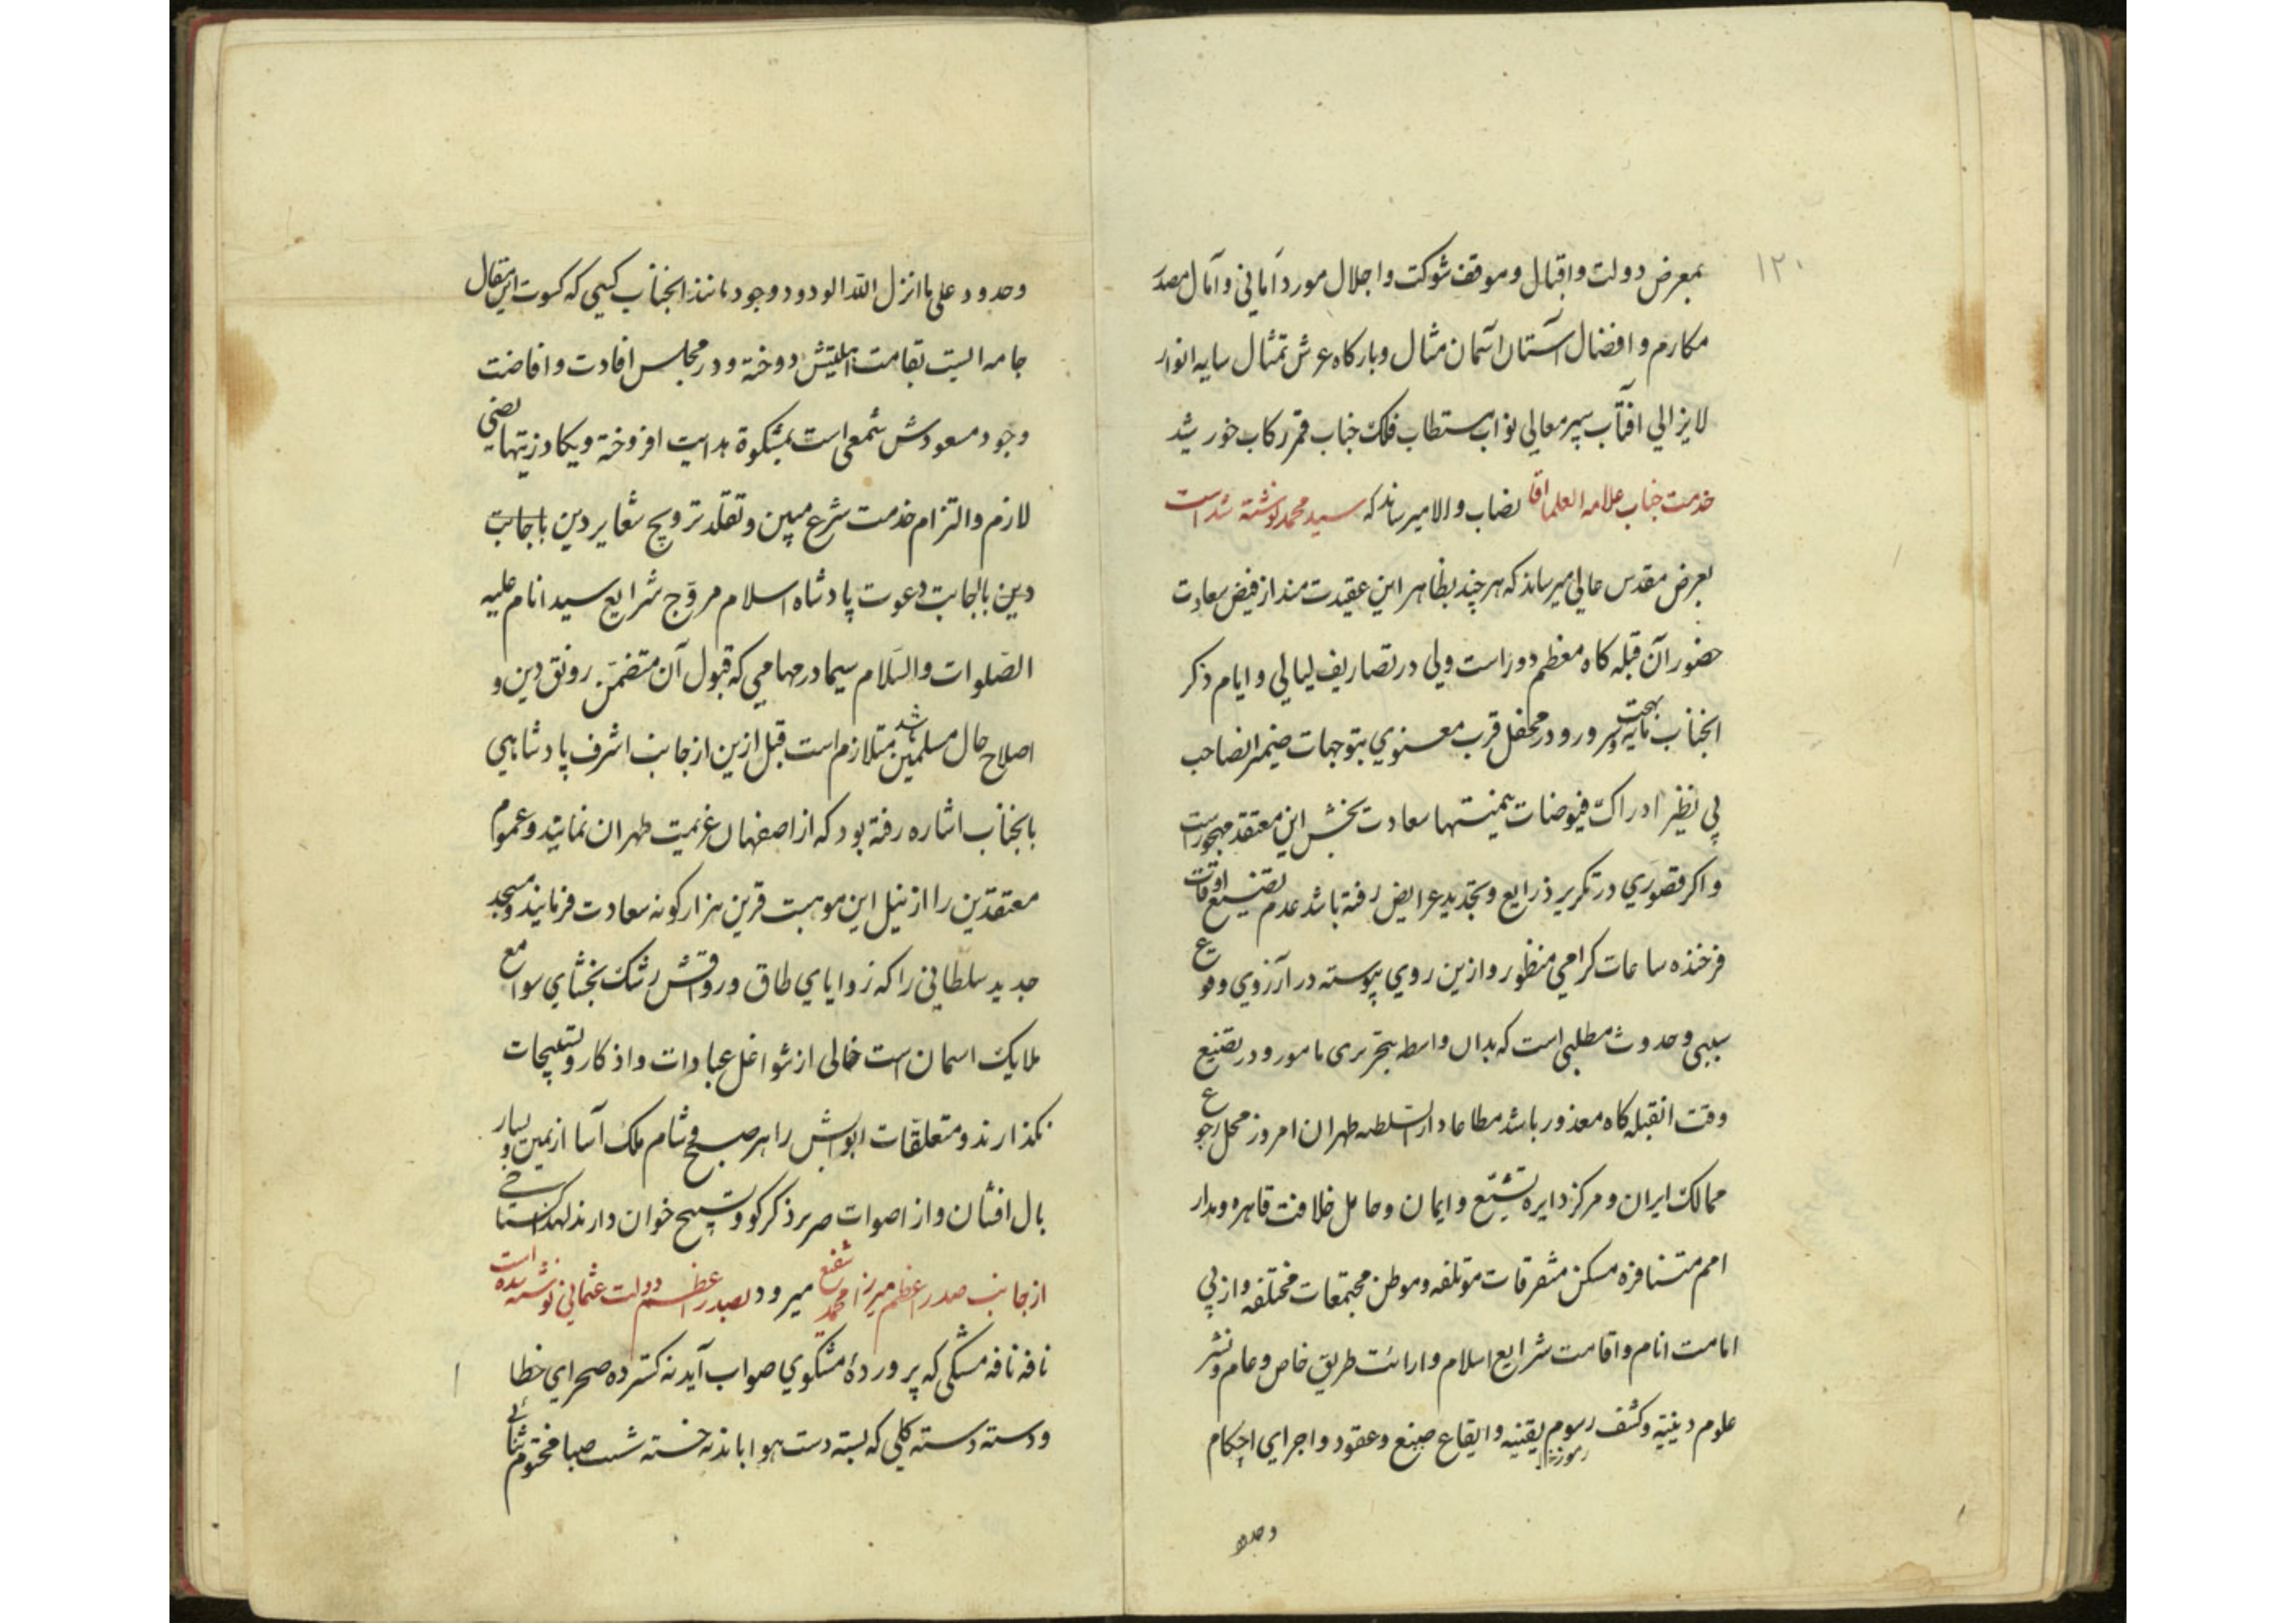 ۱۲۰
بمعرض دولت و اقبال و موقف شوکت و اجلال مورد آمانی و آمال مصدر
مکارم و افضال آستان آسمان مثال و بارکاه عرش تمثال سایه انوار
لایزالی افتاب سپهر معالی نواب مستطاب فلک جناب قمر رکاب خورشید
خدمت جناب علامه العلما اقا نصاب والا میرساند که سید محمد نوشته شده است
بعرض مقدس عالی میرساند که هر چند بظاهر این عقیدت مند از فیض سعادت
حضور آن قبله کاه معظم دور است ولی در تصاریف لیالی و ایام ذکر
انجناب مایه بهجت و سرور و در محفل قرب معنوی بتوجهات ضمیر انصاحب
بی نظیر ادراک فیوضات میمنتها سعادت بخش این معتقد مهجور است
و اکر قصوری در تکریر ذرایع و تجدید عرایض رفته باشد عدم تضییع اوقات
فرخنده ساعات کرامی منظور و ازین روی پیوسته در آرزوی وقوع
سببی و حدوث مطلبی است که بدان واسطه بتحریری مامور و در تضییع
وقت انقبله کاه معذور باشد مطاعا دارالسلطنه طهران امروز محل رجوع
ممالک ایران و مرکز دایره تشیع و ایمان و حامل خلافت قاهره و مدار
امم متنافره مسکن متفرقات موتلفه و موطن مجتمعات مختلفه و از پی
امامت انام و اقامت شرایع اسلام و ارائت طریق خاص و عام و نشر
علوم دینیه و کشف رسوم یقنیه و ایقاع صیغ و عقود و اجرای احکام
رموز
وحدود
وحدود علی ما انزل الله الودود وجود مانند انجناب کسی که کسوت این مقال
جامه ایست بقامت اهلیتش دوخته و در مجلس افادت و افاضت
وجود مسعودش شمعی است بمشکوة هدایت افروخته و یکاد زیتها یضی
لازم و التزام خدمت شرع مبین و تقلد ترویج شعایر دین باجابت
دین باجابت دعوت پادشاه اسلام مروّج شرایع سید انام علیه
الصّلوات والسّلام سیما در مهامی که قبول آن متضمّن رونق دین و
اصلاح حال مسلمین باشد متلازم است قبل ازین از جانب اشرف پادشاهی
بانجناب اشاره رفته بود که از اصفهان عزیمت طهران نمایند و عموم
معتقدین را از نیل این موهبت قرین هزار کونه سعادت فرمایند و مسجد
جدید سلطانی را که زوایای طاق و رواقش رشک بخشای صوامع
ملایک اسمان است خالی از شواغل عبادات و اذکار و تسبیحات
نکذارند و متعلقات ابوابش را هر صبح و شام ملک آسا از یمین و یسار
بال افشان و از اصوات صریر ذکر کو و تسبیح خوان دارند لهذا
از جانب صدر اعظم میرزا محمد شفیع میرود بصدر اعظم دولت عثمانی نوشته شده است
نافه نافه مشکی که پروردهٔ مشکوی صواب آید نه کسترده صحرای خطا
و دسته دسته کلی که بسته دست هوا باند نه خسته شست صبا مختوم